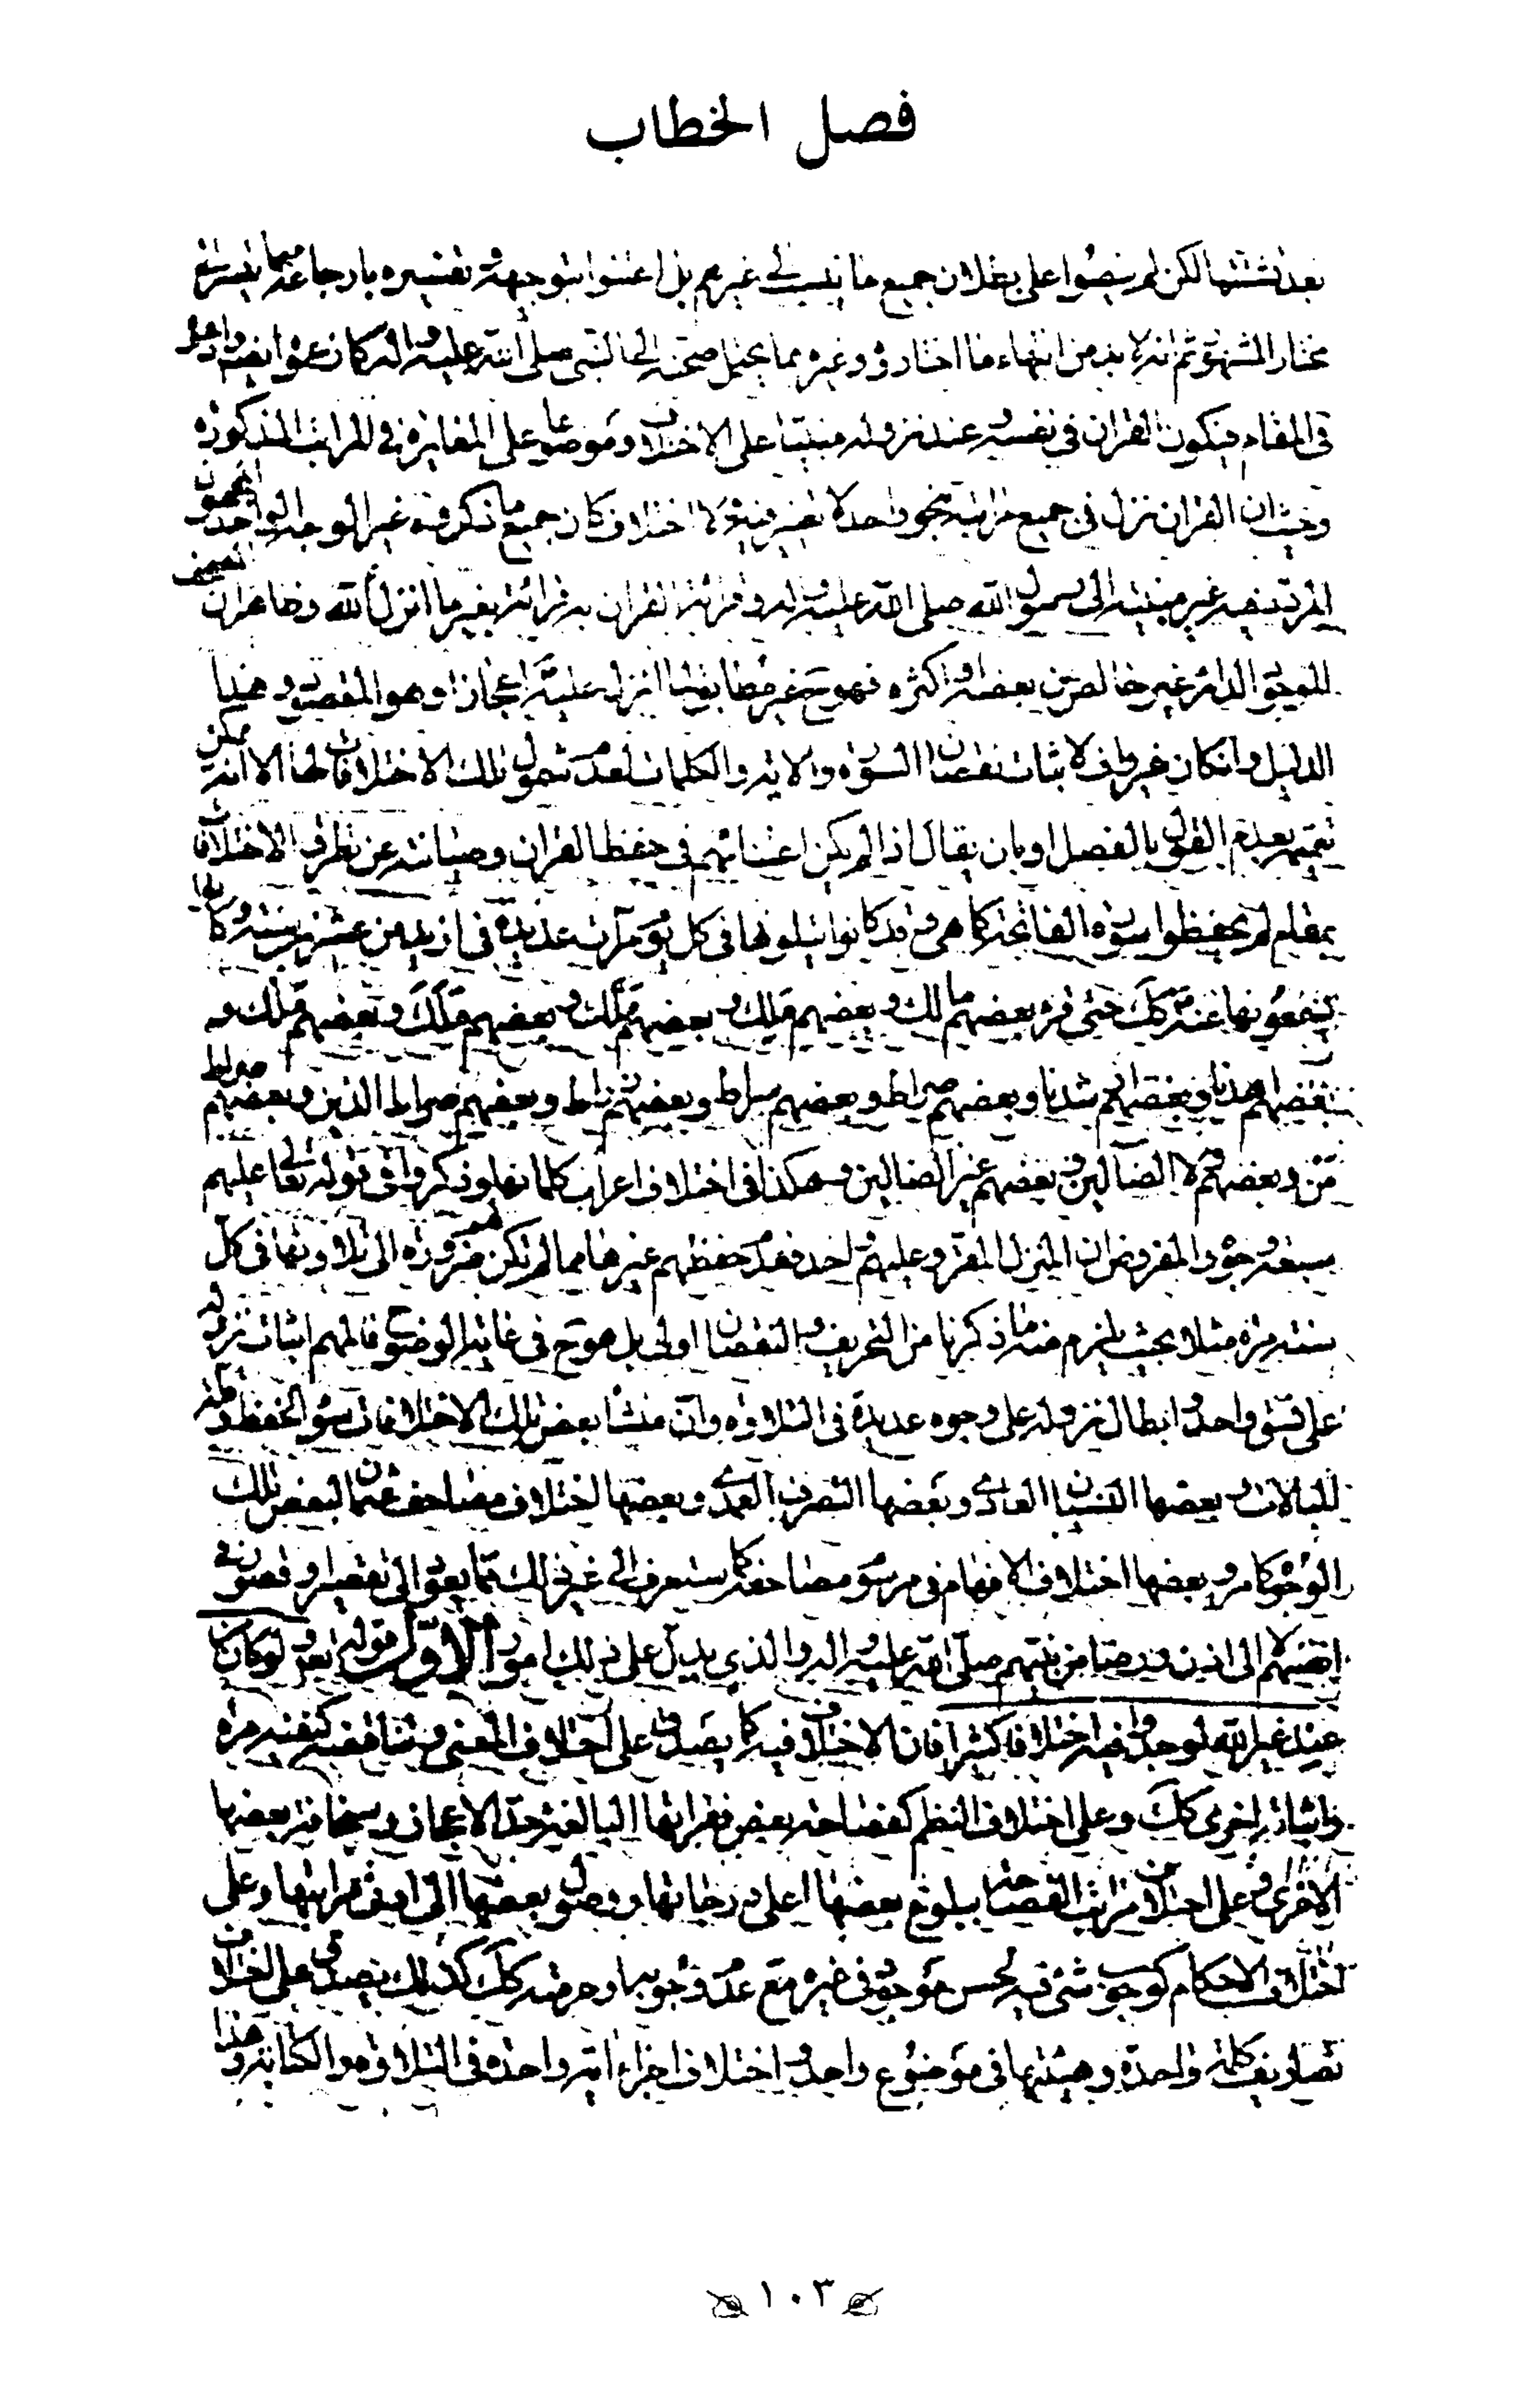 فصل الخطاب
بعد تشتتها لكن لم ينصوا على بطلان جميع ما ينسب الى غيرهم بل اعتنوا بتوجيهه وتفسيره بارجاعه
مختار المشهور ثم انه لا بد من انتهاء ما اختاروه وغيره مما يحتمل صحته الى النبي صلى الله عليه واله كان
في المقام فيكون القران في نفسه عند نزوله مبنيا على الاختلاف وموضوعا على المغايرة في المراتب المذكورة
وحيث ان القران نزل في جميع مراتبه بنحو واحد لا تغيير فيه ولا اختلاف كان جميع ما ذكروه غير الوجه الواحد
المرتضى غير منتسبة الى رسول الله صلى الله عليه واله وقرائة القران به قرائة بغير ما انزل الله وظاهر ان المصحف
الموجود الدائر غير خالص عن بعضه او اكثره فهو ح غير مطابق لما انزل عليه اعجازا وهو المقصود وهذا
الدليل وان كان غير واف لاثبات نقصان السورة والاية والكلمات لعدم شمول تلك الاختلافات لها الا انه يمكن
تتميمه بعدم القول بالفصل او بان يقال اذا لم يكن اعتنائهم في حفظ القران وصيانته عن تطرق الاختلافات
بمقام لم يحفظوا سورة الفاتحة كما هي وقد كانوا يتلونها في كل يوم مرات عديدة في ازيد من عشرين سنة وكانوا
يسمعونها عنه ص كك حتى قرء بعضهم مالك وبعضهم ملك وبعضهم ملك وبعضهم ملك وبعضهم ملك و
بعضهم اهدنا وبعضهم ارشدنا وبعضهم صراط وبعضهم سراط وبعضهم زراط وبعضهم صراط الذين وبعضهم صراط
من وبعضهم ولا الضالين وبعضهم غير الضالين وهكذا في اختلاف اعراب كلماتها وذكروا في قوله تعالى عليهم
سبعة وجوه والمفروض ان المنزل المقرو عليهم واحد فعدم حفظهم غيرها مما لم يكن لهم ضرورة الى تلاوتها في كل
سنة مرة مثلا بحيث يلزم منه ما ذكرنا من التحريف والنقصان اولى بل هو ح في غاية الوضوح فالمهم اثبات نزوله
على نسق واحد وابطال نزوله على وجوه عديدة في التلاوة وان منشأ بعض تلك الاختلافات سوء الحفظ وقلة
المبالات وبعضها النسيان العادي وبعضها التصرف العمدي وبعضها اختلاف مصاحف عثمان لبعض تلك
الوجوه كما مر وبعضها اختلاف الافهام في مرسوم مصاحفه كما ستعرف الى غير ذلك مما يعود الى تقصير او قصور في
انفسهم لا الى اذن ورضا من نبيهم صلى الله عليه واله والذي يدل على ذلك امور الاول قوله تعالى ولو كان
عند غير الله لوجدوا فيه اختلافا كثيرا فان الاختلاف فيه كما يصدق على اختلاف المعنى وتناقضه كنفيه مرة
واثباته اخرى كك وعلى اختلاف النظم كفصاحة بعض فقراتها البالغة حد الاعجاز وسخافة بعضها
الاخرى وعلى اختلاف مراتب الفصاحة ببلوغ بعضها اعلى درجاتها ووصول بعضها الى ادنى مراتبها وعلى
اختلاف الاحكام كوجوب شيء فيه لحسن موجود في غيره مع عدم وجوبه او حرمته كك كذلك يصدق على اختلاف
تصاريف كلمة واحدة وهيئتها في موضوع واحد واختلاف اجزاء اية واحدة في التلاوة والكتابة وهذا
١٠٣